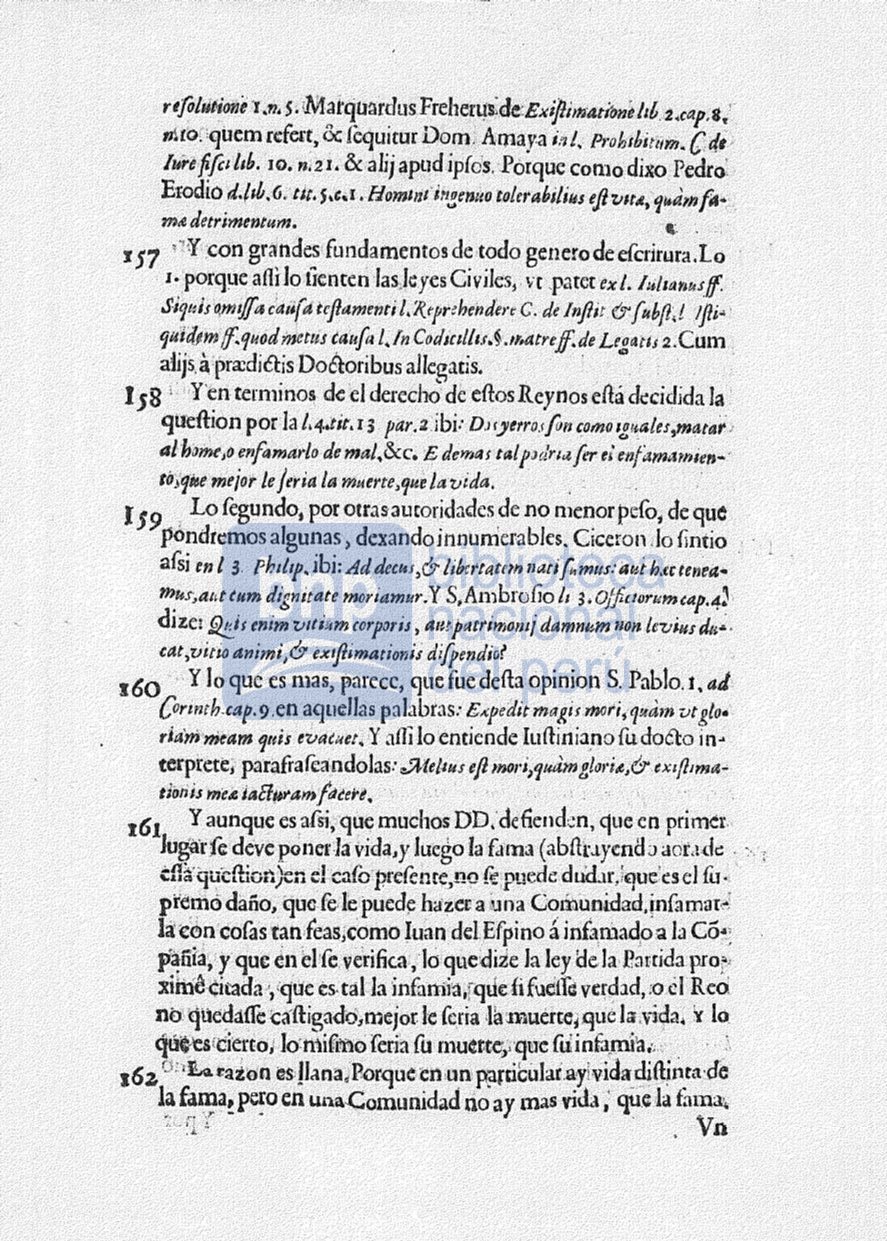 resolutione 1.n.5. Marquardus Freherus de Existimatione lib 2.cap.8.
n.10. quem refert, & sequitur Dom. Amaya in l. Prohibitum. C. de
Iure fisci lib. 10. n.21. & alij apud ipsos. Porque como dixo Pedro
Erodio d.lib.6. tit.5.c.1. Homini ingenuo tolerabilius est vitæ, quàm fa-
mæ detrimentum.
157 Y con grandes fundamentos de todo genero de escritura. Lo
1. porque assi lo sienten las leyes Civiles, vt patet ex l. Iulianus ff.
Siquis omissa causa testamenti l. Reprehendere C. de Instit & subst. l Isti-
quidem ff. quod metus causa l. In Codicillis.§.matre ff. de Legatis 2. Cum
alijs à prædictis Doctoribus allegatis.
158 Y en terminos de el derecho de estos Reynos está decidida la
question por la l.4.tit.13 par.2 ibi: Dos yerros son como iguales, matar
al home, o enfamarlo de mal, &c. E demas tal podria ser el enfamamien-
to, que mejor le seria la muerte, que la vida.
159 Lo segundo, por otras autoridades de no menor peso, de que
pondremos algunas, dexando innumerables. Ciceron lo sintio
assi en l 3 Philip. ibi: Ad decus, & libertatem nati sumus: aut hæc tenea-
mus, aut cum dignitate moriamur. Y S. Ambrosio li 3. Officiorum cap.4.
dize: Quis enim vitium corporis, aut patrimonij damnum non levius du-
cat, vitio animi, & existimationis dispendio?
160 Y lo que es mas, parece, que fue desta opinion S. Pablo. 1. ad
Corinth. cap. 9. en aquellas palabras: Expedit magis mori, quàm vt glo-
riam meam quis evacuet. Y assi lo entiende Iustiniano su docto in-
terprete, parafraseandolas: Melius est mori, quàm gloriæ, & existima-
tionis meæ iacturam facere.
161 Y aunque es assi, que muchos DD. defienden, que en primer
lugar se deve poner la vida, y luego la fama (abstrayendo aora de
essa question) en el caso presente, no se puede dudar, que es el su-
premo daño, que se le puede hazer a una Comunidad, infamar-
la con cosas tan feas, como Iuan del Espino á infamado a la Cõ-
pañia, y que en el se verifica, lo que dize la ley de la Partida pro-
ximê citada, que es tal la infamia, que si fuesse verdad, o el Reo
no quedasse castigado, mejor le seria la muerte, que la vida. Y lo
que es cierto, lo mismo seria su muerte, que su infamia.
162 La razon es llana. Porque en un particular ay vida distinta de
la fama, pero en una Comunidad no ay mas vida, que la fama.
Vn
bnp biblioteca
nacional
del perú